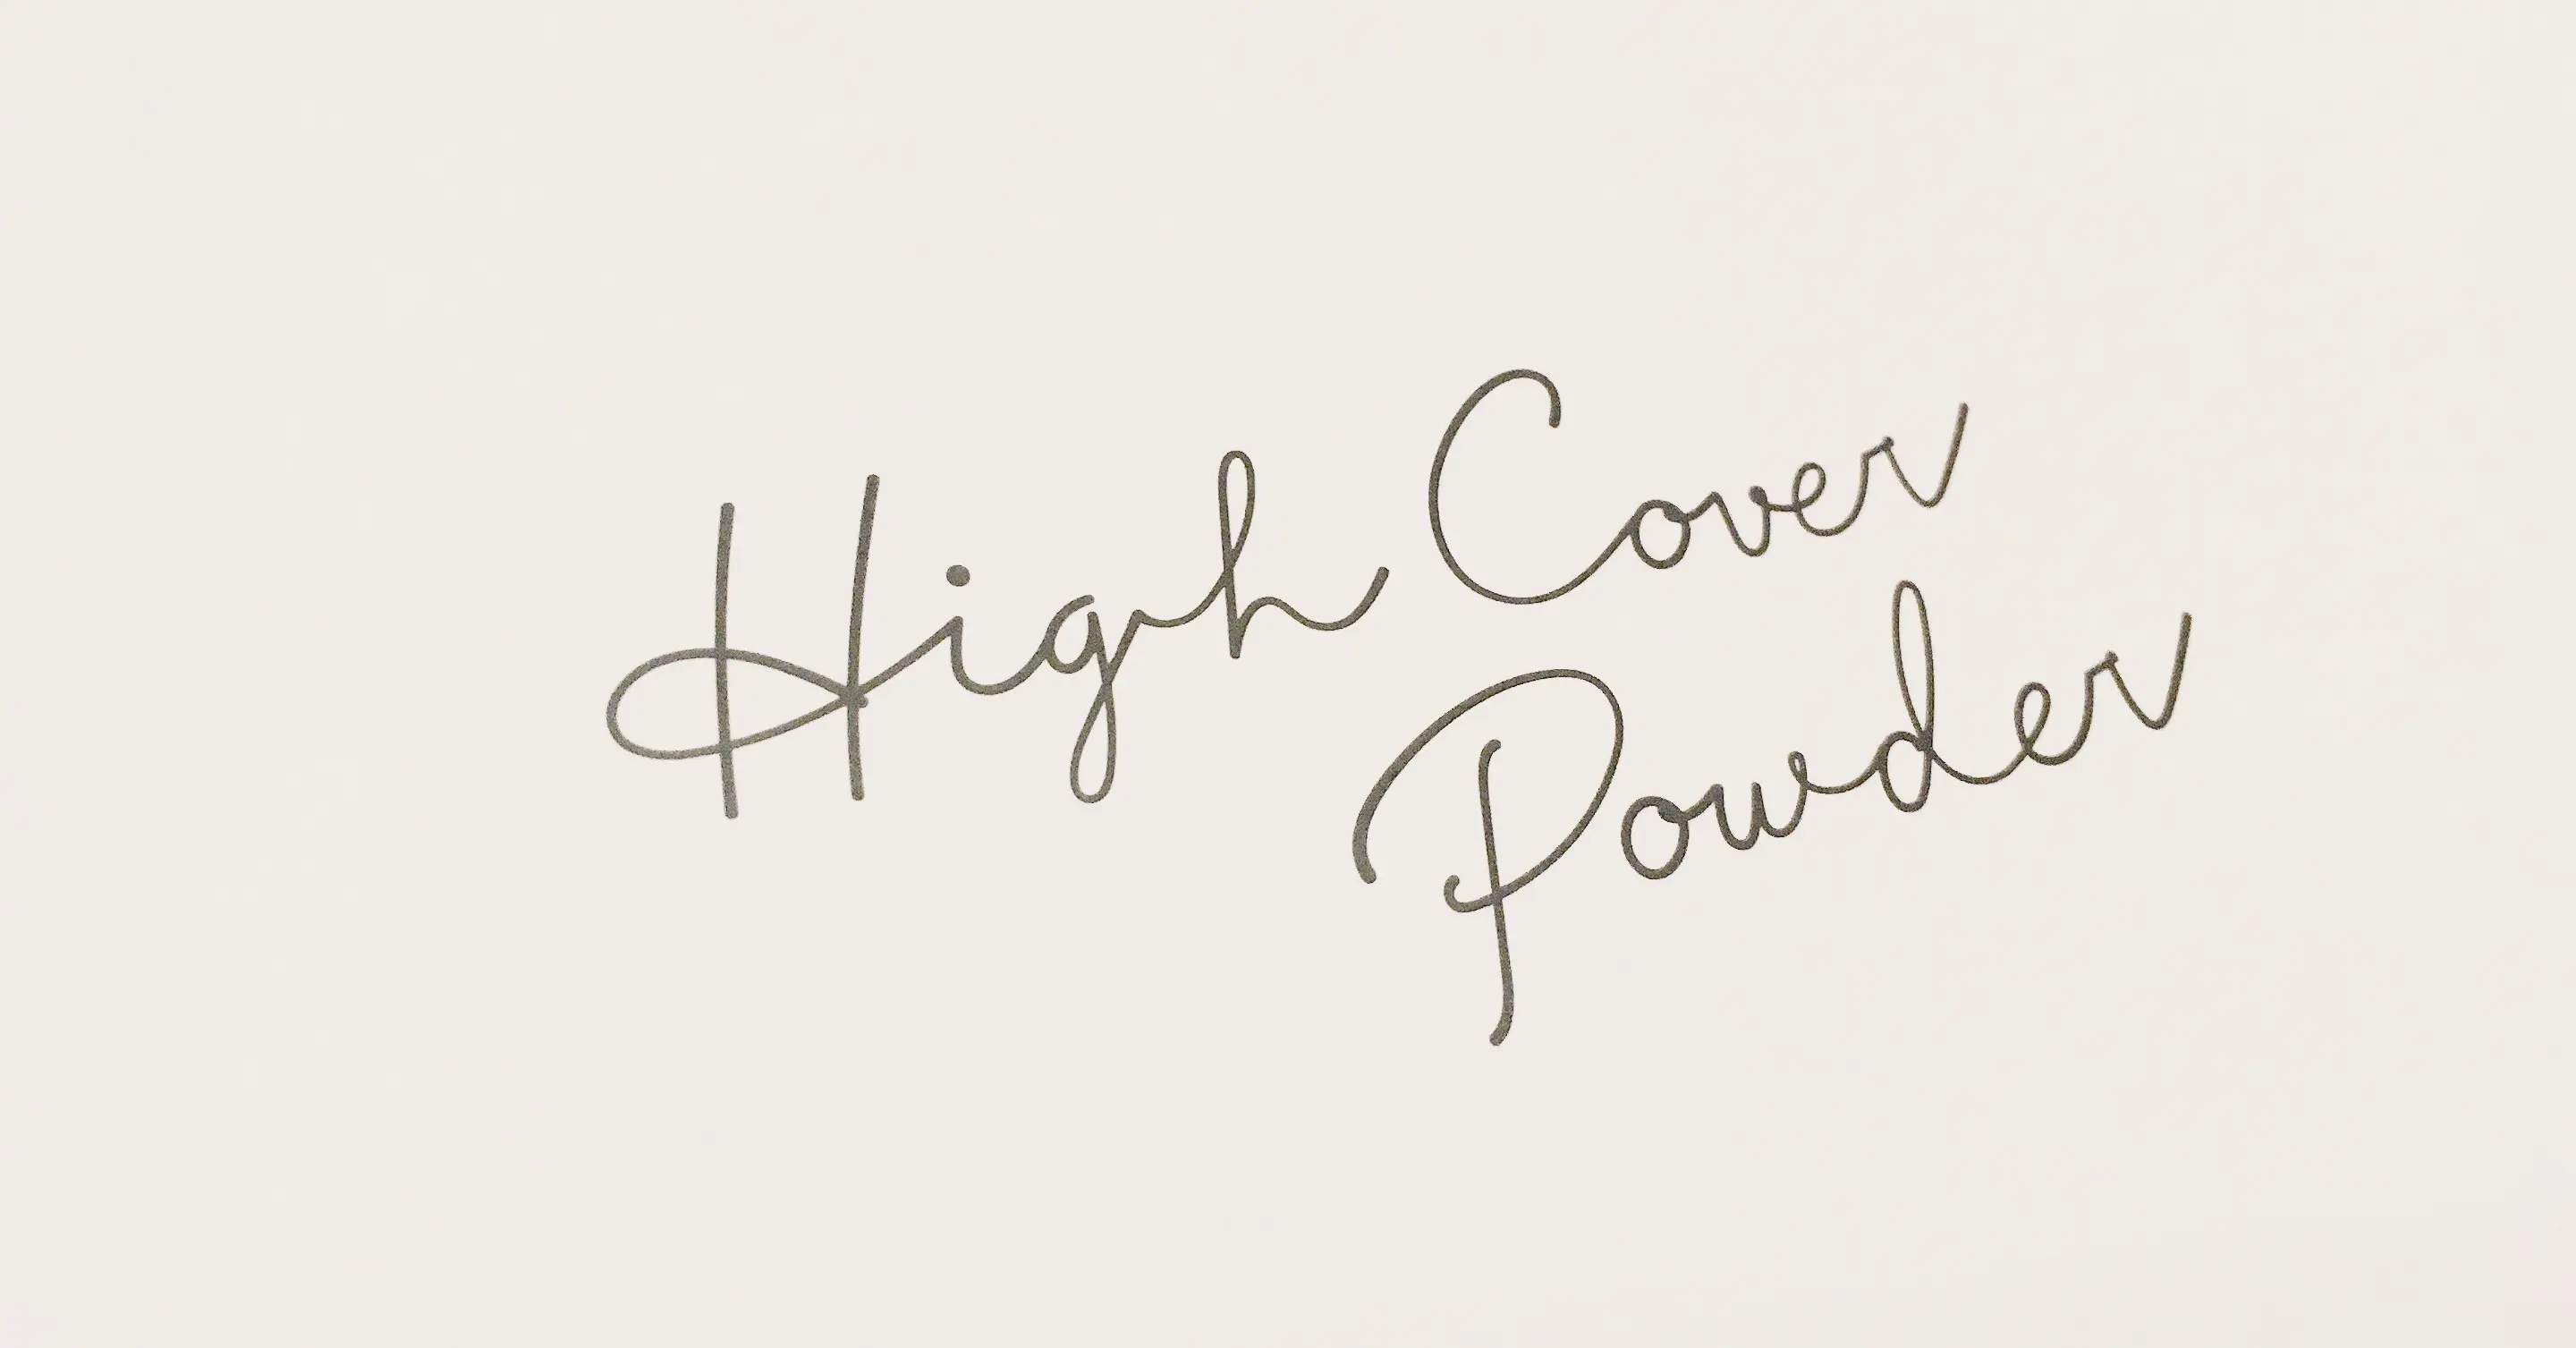 High Cover
Powder